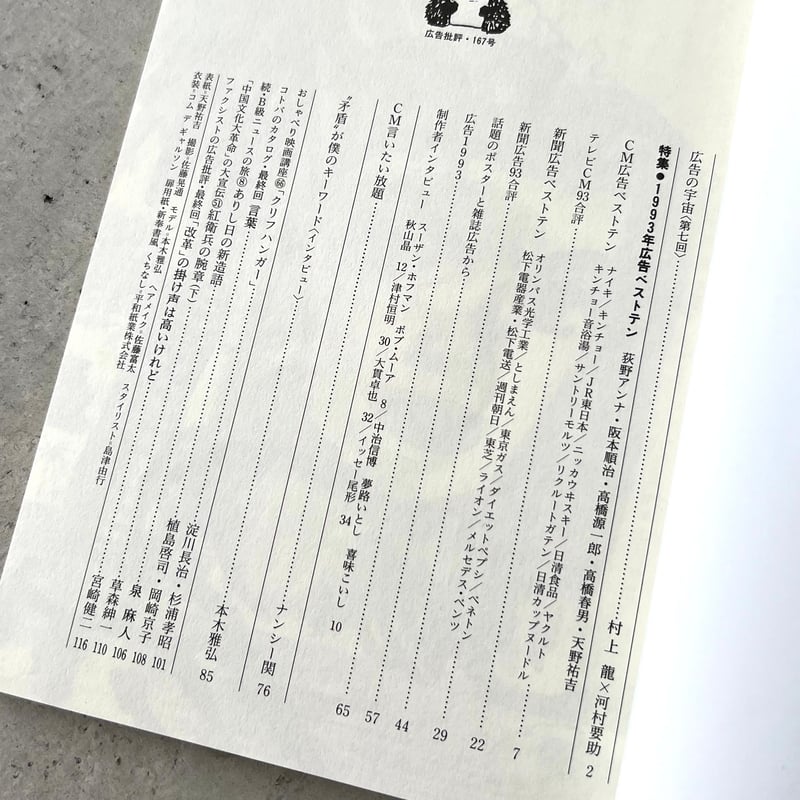 広告批評・167号
広告の宇宙〈第七回〉 村上 龍×河村要助 2
特集●1993年広告ベストテン
荻野アンナ・阪本順治・高橋源一郎・高橋春男・天野祐吉
CM広告ベストテン ナイキ/キンチョー/JR東日本/ニッカウヰスキー/日清食品/ヤクルト
キンチョー音浴湯/サントリーモルツ/リクルートガテン/日清カップヌードル
テレビCM93合評 7
新聞広告ベストテン オリンパス光学工業/としまえん/東京ガス/ダイエットペプシ/ベネトン
松下電器産業・松下電送/週刊朝日/東芝/ライオン/メルセデス・ベンツ
新聞広告93合評 22
話題のポスターと雑誌広告から 29
広告1993 44
制作者インタビュー スーザン・ホフマン ボブ・ムーア 8/中治信博 夢路いとし 喜味こいし 10
秋山晶 12/津村恒明 30/大貫卓也 32/イッセー尾形 34
CM言いたい放題 57
“矛盾”が僕のキーワード〈インタビュー〉 65
ナンシー関 76
本木雅弘 85
おしゃべり映画講座66「クリフハンガー」 淀川長治・杉浦孝昭 101
コトバのカタログ・最終回 言葉 植島啓司・岡崎京子 108
続・B級ニュースの旅⑧ありし日の新造語 泉 麻人 106
「中国文化大革命」の大宣伝51紅衛兵の腕章〈下〉 草森紳一 110
ファクシストの広告批評・最終回「改革」の掛け声は高いけれど 宮崎健二 116
表紙=天野祐吉 撮影=佐藤晃通 モデル=本木雅弘 ヘアメイク=佐藤富太 スタイリスト=島津由行
衣装=コム デ ギャルソン 扉用紙・新奉書風 くちなし=平和紙業株式会社